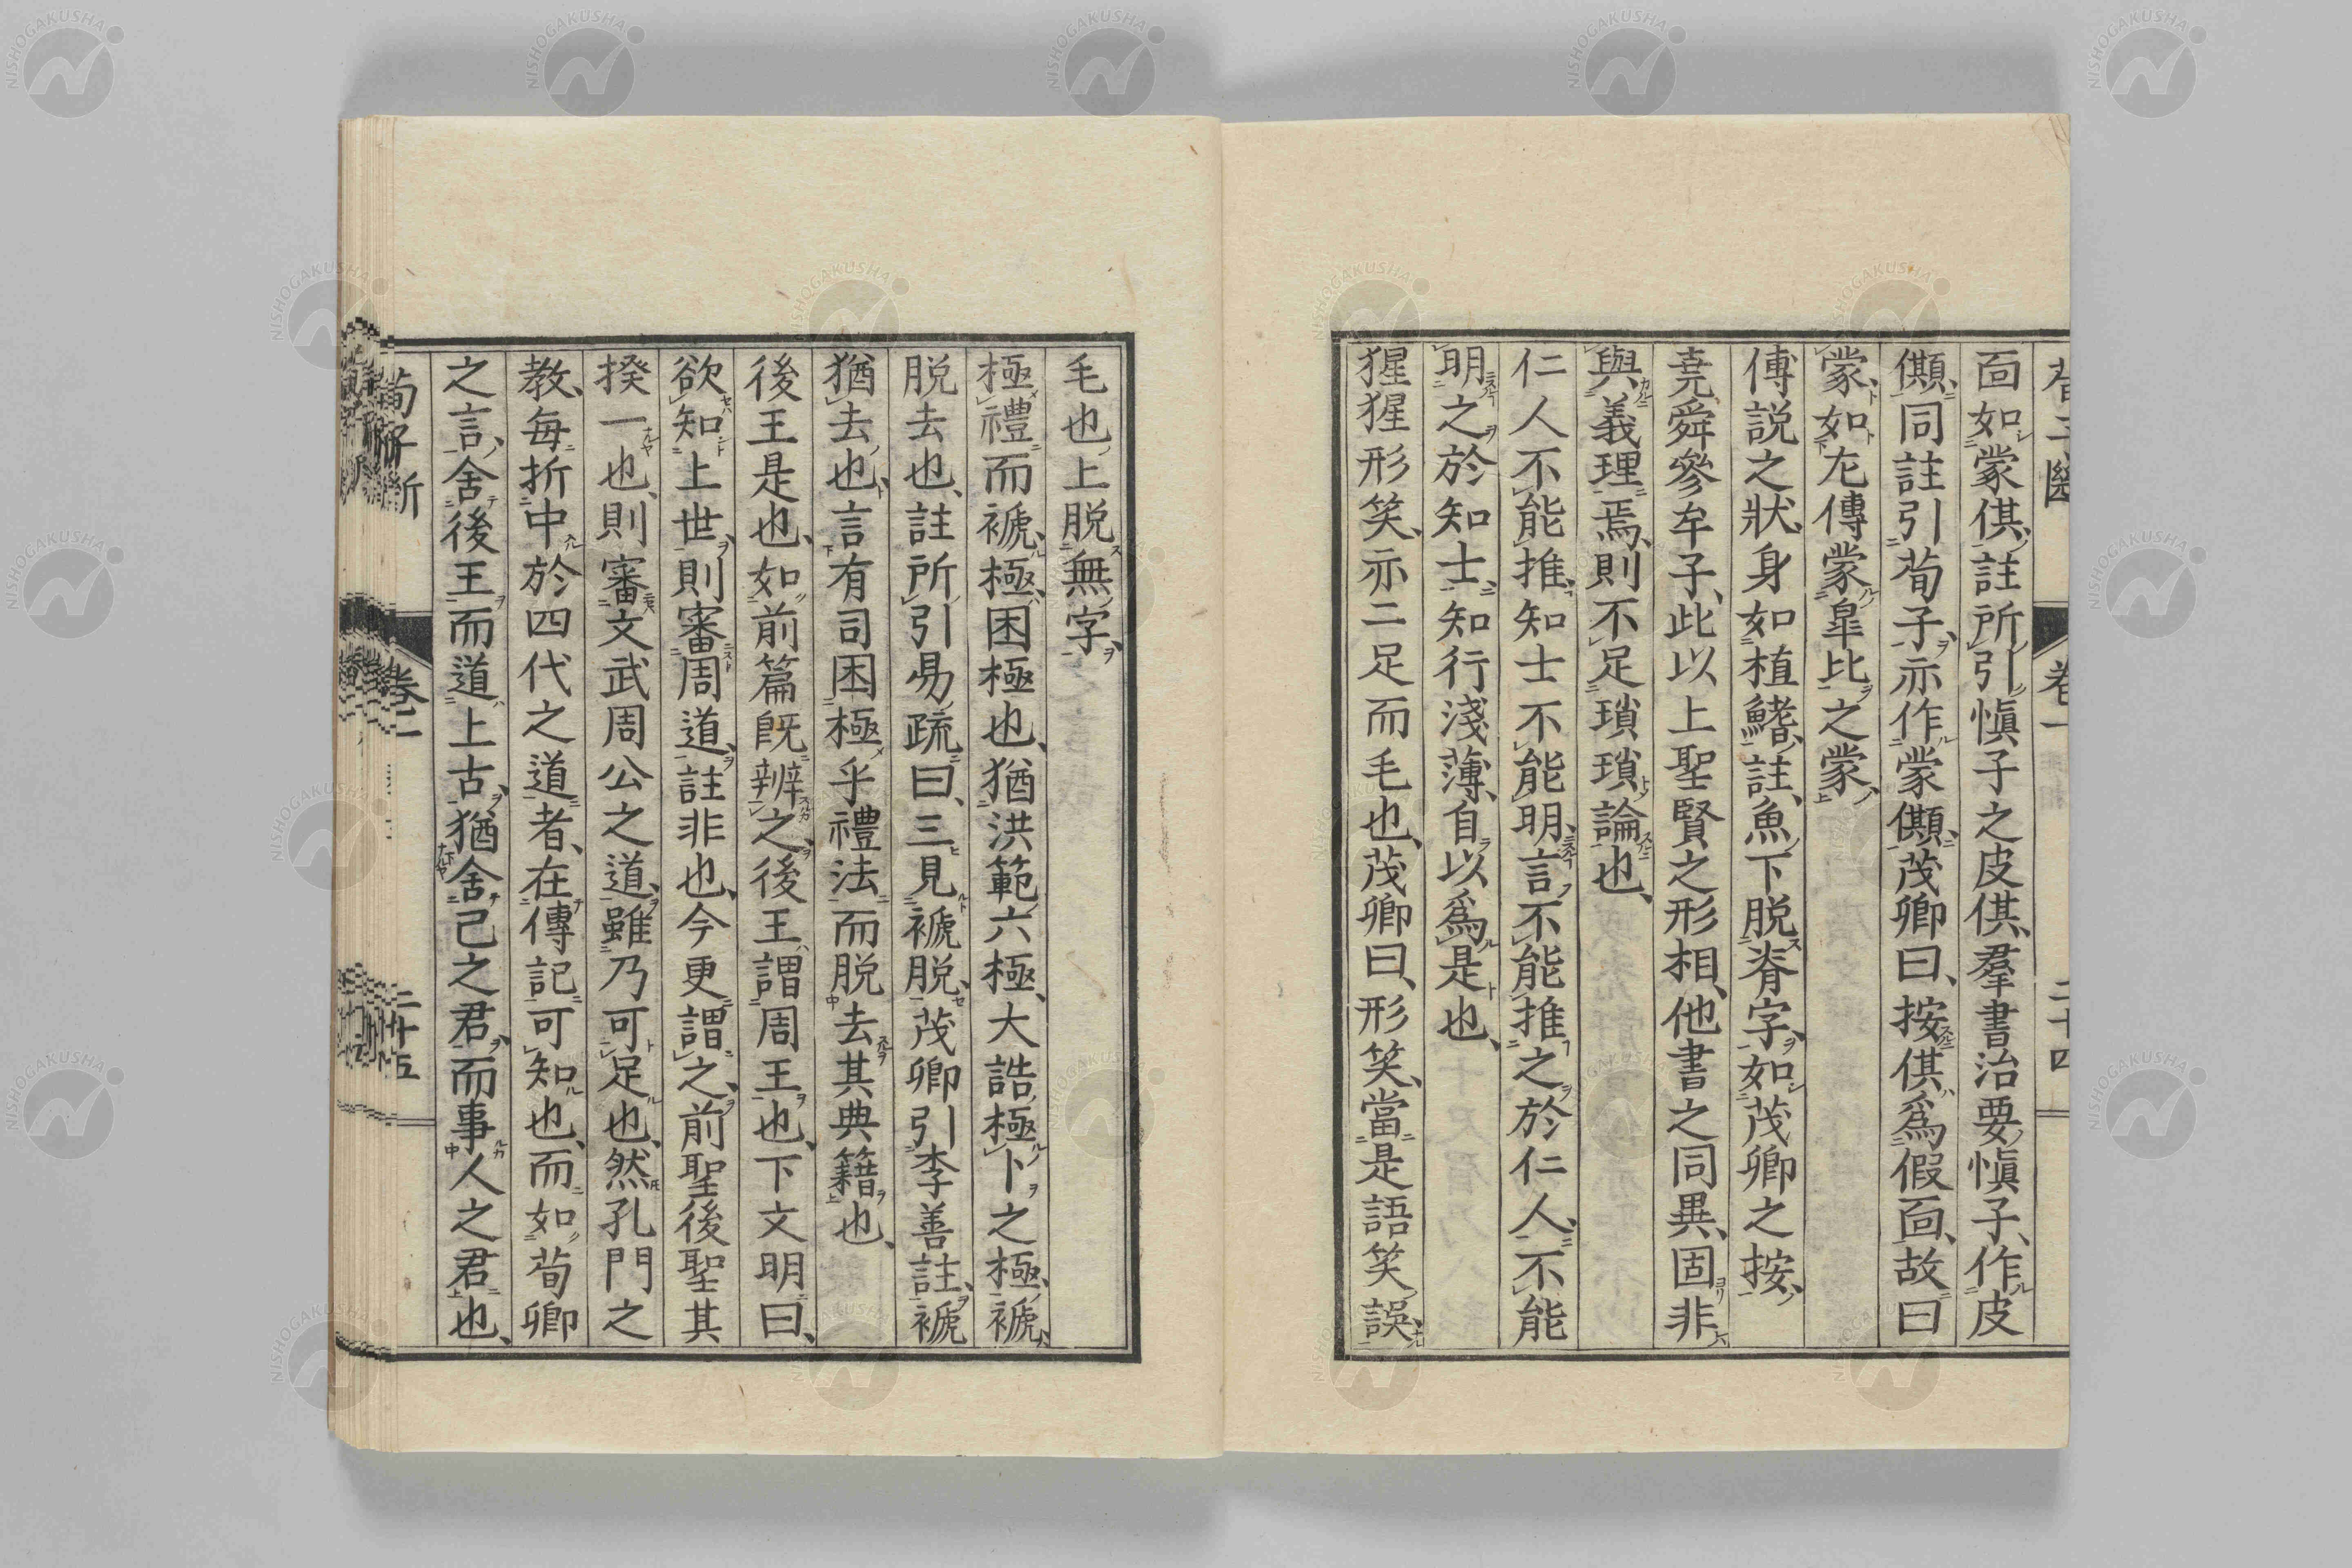 面如蒙倛、註所引愼子之皮倛、羣書治要愼子、作皮
僛、同註引荀子、示作蒙僛、茂卿曰、按倛爲假面、故曰
蒙、如左傳蒙皐比之蒙、
傅説之狀、身如植鰭、註、魚下脱脊字、如茂卿之按、
堯舜參牟子、此以上聖賢之形相、他書之同異、固非
與義理焉、則不足瑣瑣論也、
仁人不能推、知士不能明、言不能推之於仁人、不能
明之於知士、知行淺薄、自以爲是也、
猩猩形笑、示二足而毛也、茂卿曰、形笑、當是語笑誤、
卷一
二十四
毛也、上脱無字、
極禮而褫、極、困極也、猶洪範六極、大誥極卜之極、褫、
脱去也、註所引易疏曰、三見褫脱、茂卿引李善註、褫
猶去也、言有司困極乎禮法而脱去其典籍也、
後王是也、如前篇旣辨之、後王、謂周王也、下文明曰、
欲知上世、則審周道、註非也、今更謂之、前聖後聖其
揆一也、則審文武周公之道、雖乃可足也、然孔門之
教、每折中於四代之道者、在傳記可知也、而如荀卿
之言、舍後王而道上古、猶舍己之君、而事人之君也、
荀子斷
卷二
二十五
NISHOGAKUSHA